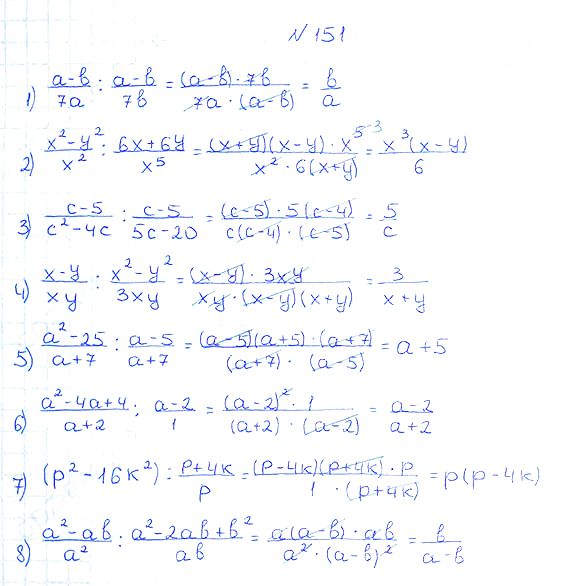 N 151
1) (a-b)/(7a) : (a-b)/(7b) = ((a-b)·7b)/(7a·(a-b)) = b/a
2) (x²-y²)/x² : (6x+6y)/x⁵ = ((x+y)(x-y)·x⁵ ³)/(x²·6(x+y)) = (x³(x-y))/6
3) (c-5)/(c²-4c) : (c-5)/(5c-20) = ((c-5)·5(c-4))/(c(c-4)·(c-5)) = 5/c
4) (x-y)/(xy) : (x²-y²)/(3xy) = ((x-y)·3xy)/(xy·(x-y)(x+y)) = 3/(x+y)
5) (a²-25)/(a+7) : (a-5)/(a+7) = ((a-5)(a+5)·(a+7))/((a+7)·(a-5)) = a+5
6) (a²-4a+4)/(a+2) : (a-2)/1 = ((a-2)²·1)/((a+2)·(a-2)) = (a-2)/(a+2)
7) (p²-16k²) : (p+4k)/p = ((p-4k)(p+4k)·p)/(1·(p+4k)) = p(p-4k)
8) (a²-ab)/a² : (a²-2ab+b²)/(ab) = (a(a-b)·ab)/(a²·(a-b)²) = b/(a-b)